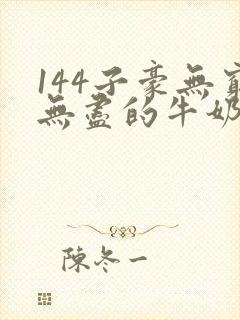 144子豪無窮
無盡的牛奶
陳冬一